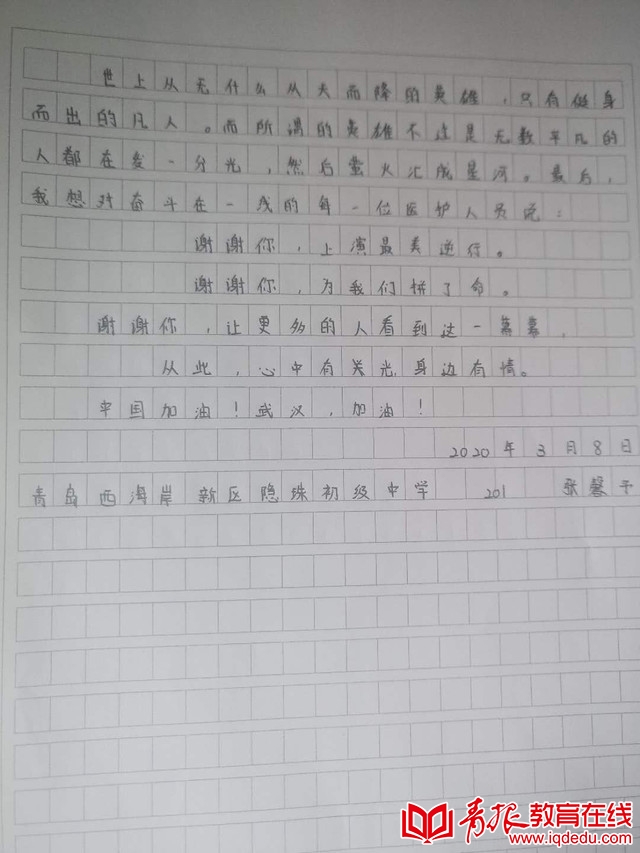 世上从无什么从天而降的英雄，只有挺身
而出的凡人。而所谓的英雄不过是无数平凡的
人都在发一分光，然后萤火汇成星河。最后，
我想对奋斗在一线的每一位医护人员说：
谢谢你，上演最美逆行。
谢谢你，为我们拼了命。
谢谢你，让更多的人看到这一幕幕，
从此，心中有光，身边有情。
中国加油！武汉，加油！
2020年3月8日
青岛西海岸新区隐珠初级中学 201 张馨予
青报教育在线
www.iqdedu.com